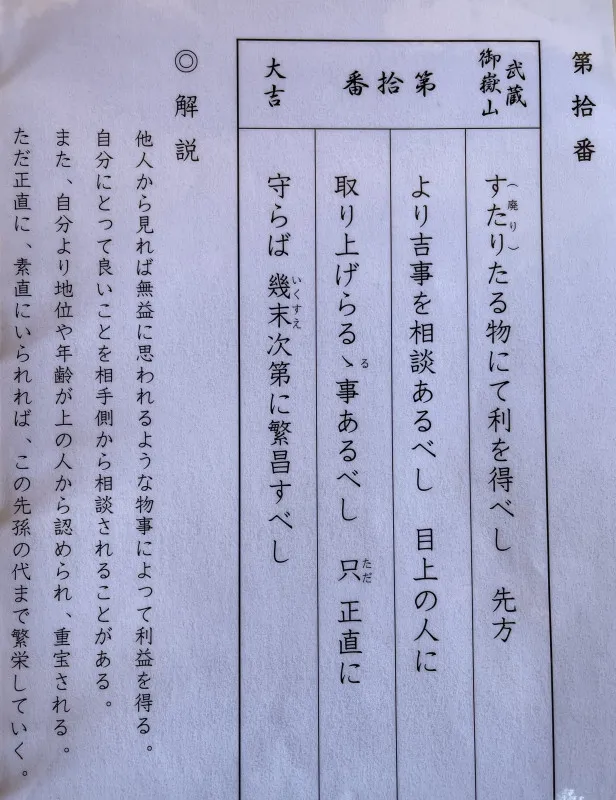 第拾番
武蔵
御嶽山
第拾番
大吉
すたり(廃り)たる物にて利を得べし　先方
より吉事を相談あるべし　目上の人に
取り上げらるゝ(る)事あるべし　只(ただ)正直に
守らば　幾末(いくすえ)次第に繁昌すべし
◎解説
他人から見れば無益に思われるような物事によって利益を得る。
自分にとって良いことを相手側から相談されることがある。
また、自分より地位や年齢が上の人から認められ、重宝される。
ただ正直に、素直にいられれば、この先孫の代まで繁栄していく。